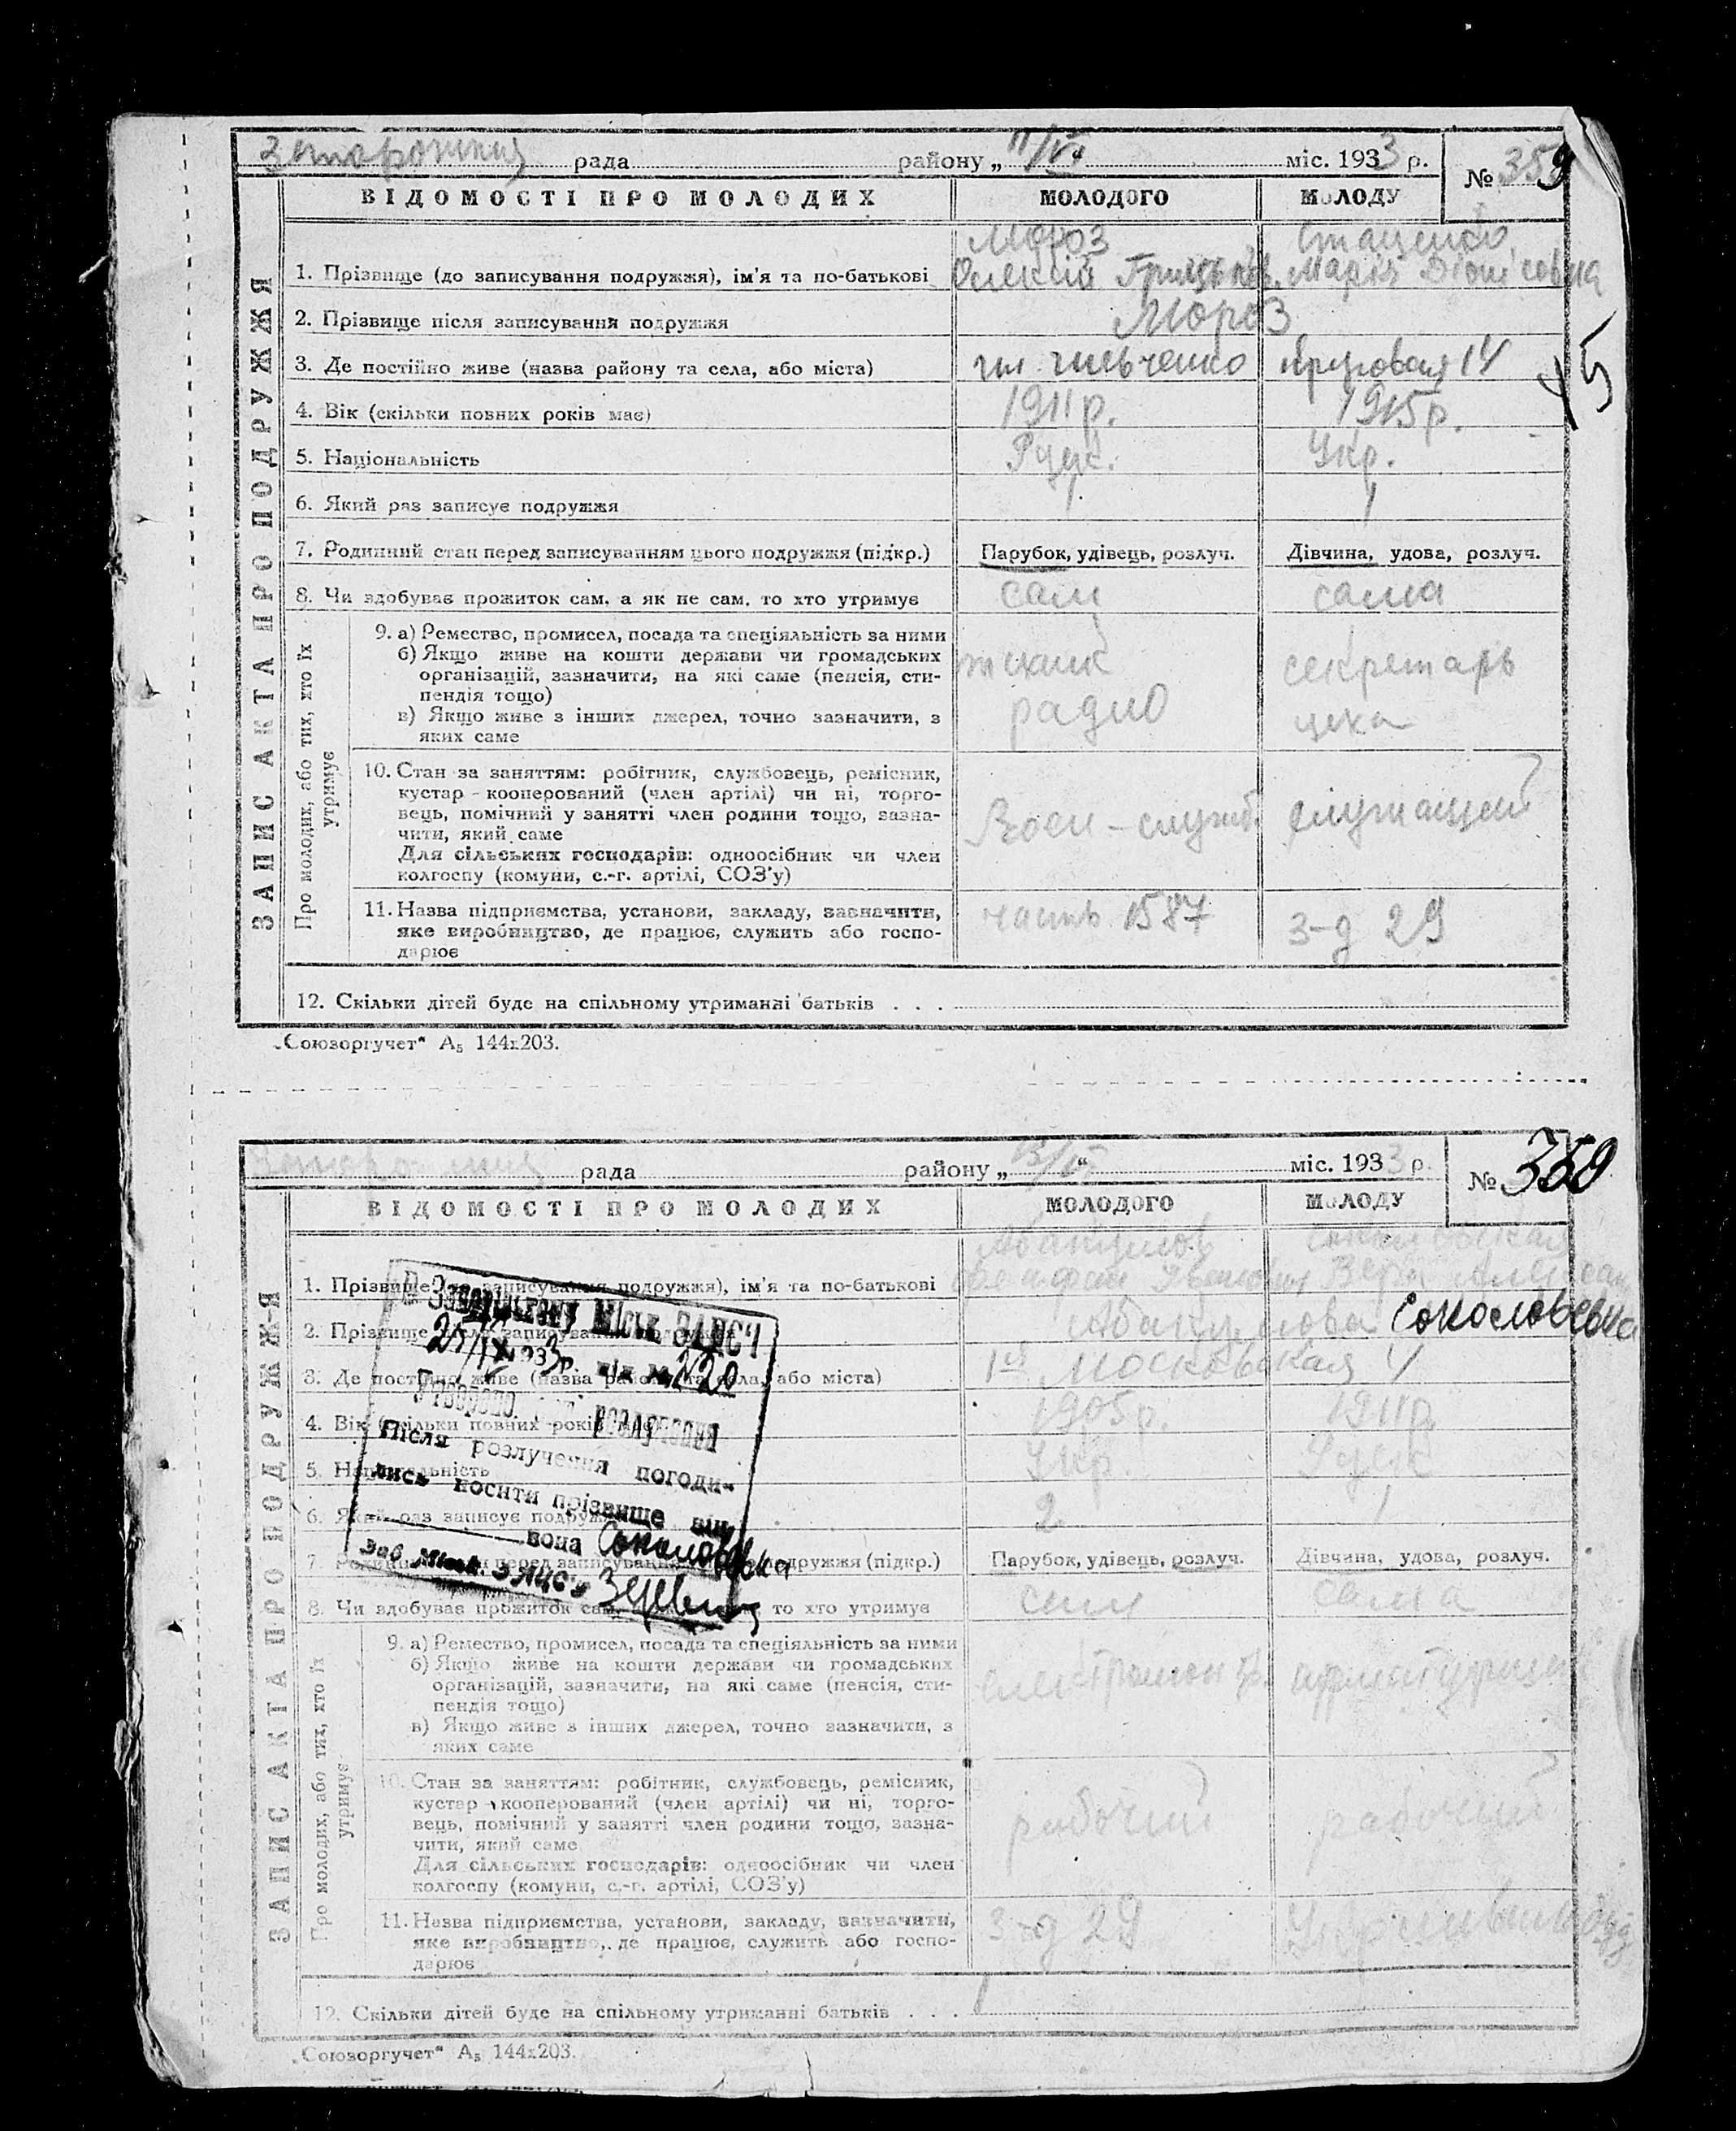 рада району „11/VI міс. 1933 р.
№ 359
ВІДОМОСТІ ПРО МОЛОДИХ МОЛОДОГО МОЛОДУ
ЗАПИС АКТА ПРО ПОДРУЖЖЯ
Мороз Стаценко
1. Прізвище (до записування подружжя), ім'я та по-батькові Олексій Марія
2. Прізвище після записування подружжя Мороз
3. Де постійно живе (назва району та села, або міста) Шевченко 14
4. Вік (скільки повних років має) 1911р. 1915р.
5. Національність Руск. Укр.
6. Який раз записує подружжя 1 1
7. Родинний стан перед записуванням цього подружжя (підкр.) Парубок, удівець, розлуч. Дівчина, удова, розлуч.
8. Чи здобуває прожиток сам, а як не сам, то хто утримує сам сама
Про молодих, або тих, хто їх утримує
9. а) Ремество, промисел, посада та спеціяльність за ними
б) Якщо живе на кошти держави чи громадських
організацій, зазначити, на які саме (пенсія, сти-
пендія тощо)
в) Якщо живе з інших джерел, точно зазначити, з
яких саме
радио
секретарь
цеха
10. Стан за заняттям: робітник, службовець, ремісник,
кустар - кооперований (член артілі) чи ні, торго-
вець, помічний у занятті член родини тощо, зазна-
чити, який саме
Для сільських господарів: одноосібник чи член
колгоспу (комуни, с.-г. артілі, СОЗ'у)
Воен-служ. служащий
11. Назва підприємства, установи, закладу, зазначити,
яке виробництво, де працює, служить або госпо-
дарює
часть 1587 з-д 29
12. Скільки дітей буде на спільному утриманні батьків . . .
„Союзоргучет“ А₅ 144х203.
рада району „ “ міс. 1933 р.
№ 359
ВІДОМОСТІ ПРО МОЛОДИХ МОЛОДОГО МОЛОДУ
ЗАПИС АКТА ПРО ПОДРУЖЖЯ
Абакумов
1. Прізвище (до записування подружжя), ім'я та по-батькові
2. Прізвище після записування подружжя Абакумова
3. Де постійно живе (назва району та села, або міста) Московская 4
4. Вік (скільки повних років має) 1905р. 1911р.
5. Національність Укр Руск
6. Який раз записує подружжя 2 1
7. Родинний стан перед записуванням цього подружжя (підкр.) Парубок, удівець, розлуч. Дівчина, удова, розлуч.
8. Чи здобуває прожиток сам, а як не сам, то хто утримує сам сама
Міськ ЗАГС'і
Після розлучення погоди-
лись носити прізвище він
вона
Зав. Міськ. ЗАГС'у
Про молодих, або тих, хто їх утримує
9. а) Ремество, промисел, посада та спеціяльність за ними
б) Якщо живе на кошти держави чи громадських
організацій, зазначити, на які саме (пенсія, сти-
пендія тощо)
в) Якщо живе з інших джерел, точно зазначити, з
яких саме
10. Стан за заняттям: робітник, службовець, ремісник,
кустар - кооперований (член артілі) чи ні, торго-
вець, помічний у занятті член родини тощо, зазна-
чити, який саме
Для сільських господарів: одноосібник чи член
колгоспу (комуни, с.-г. артілі, СОЗ'у)
рабочий рабочий
11. Назва підприємства, установи, закладу, зазначити,
яке виробництво, де працює, служить або госпо-
дарює
з-д 29
12. Скільки дітей буде на спільному утриманні батьків . . . 1
„Союзоргучет“ А₅ 144х203.